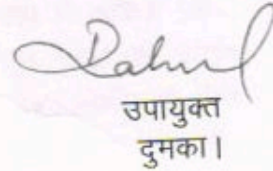 Rahul
उपायुक्त
दुमका।